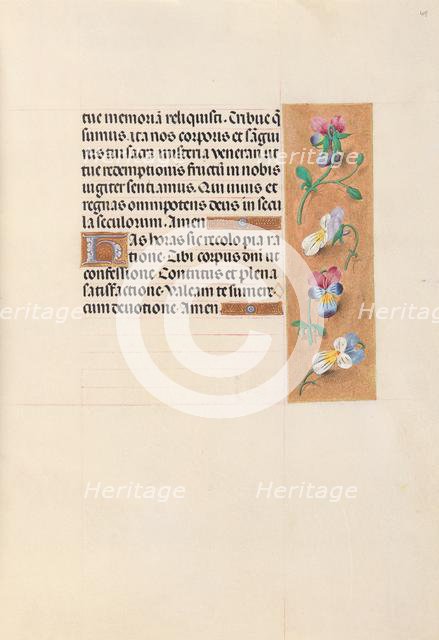 49
tue memoriā reliquisti. Tribue q̄
sumus. ita nos corporis et sāgui
nis tui sacra misteria venerari ut
tue redemptionis fructū in nobis
iugiter sentiamus. Qui vivis et
regnas omnipotens deus in secu
la seculorum. Amen
Has horas sic recolo pia ra
tione. Tibi corpus dn̄i ut
confessione. Contritus et plena
satisfactione. Valeam te sumer
cum devotione. Amen
Heritage Heritage Heritage
Heritage Heritage